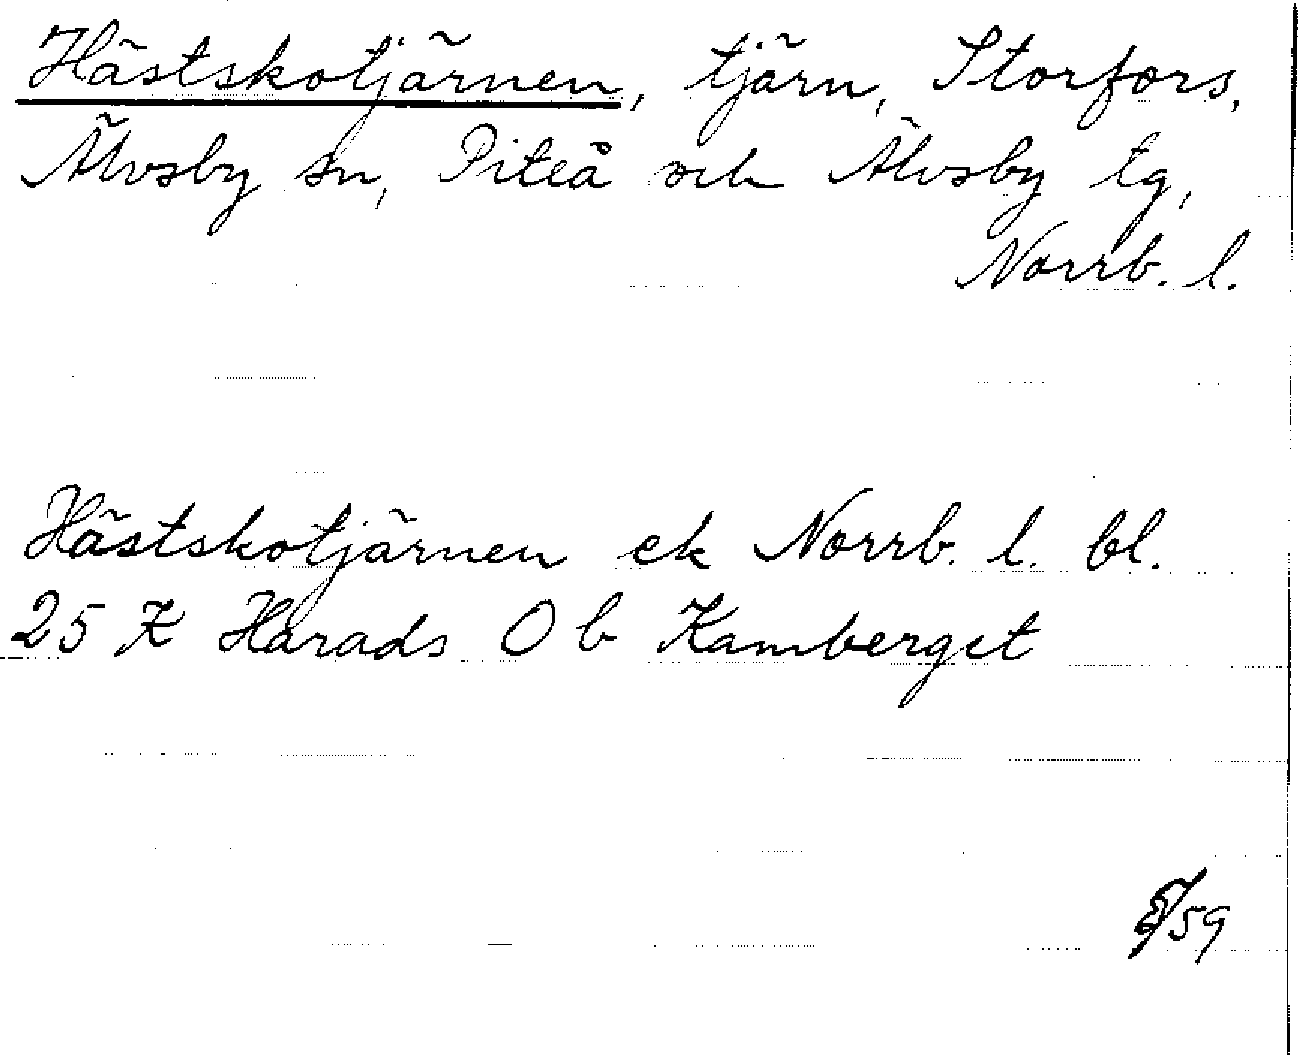 Hästskotjärnen, tjärn, Storfors,
Älvsby sn, Piteå och Älvsby tg,
Norrb. l.
Hästskotjärnen ek Norrb. l. bl.
25 K Harads O b Kamberget
/59